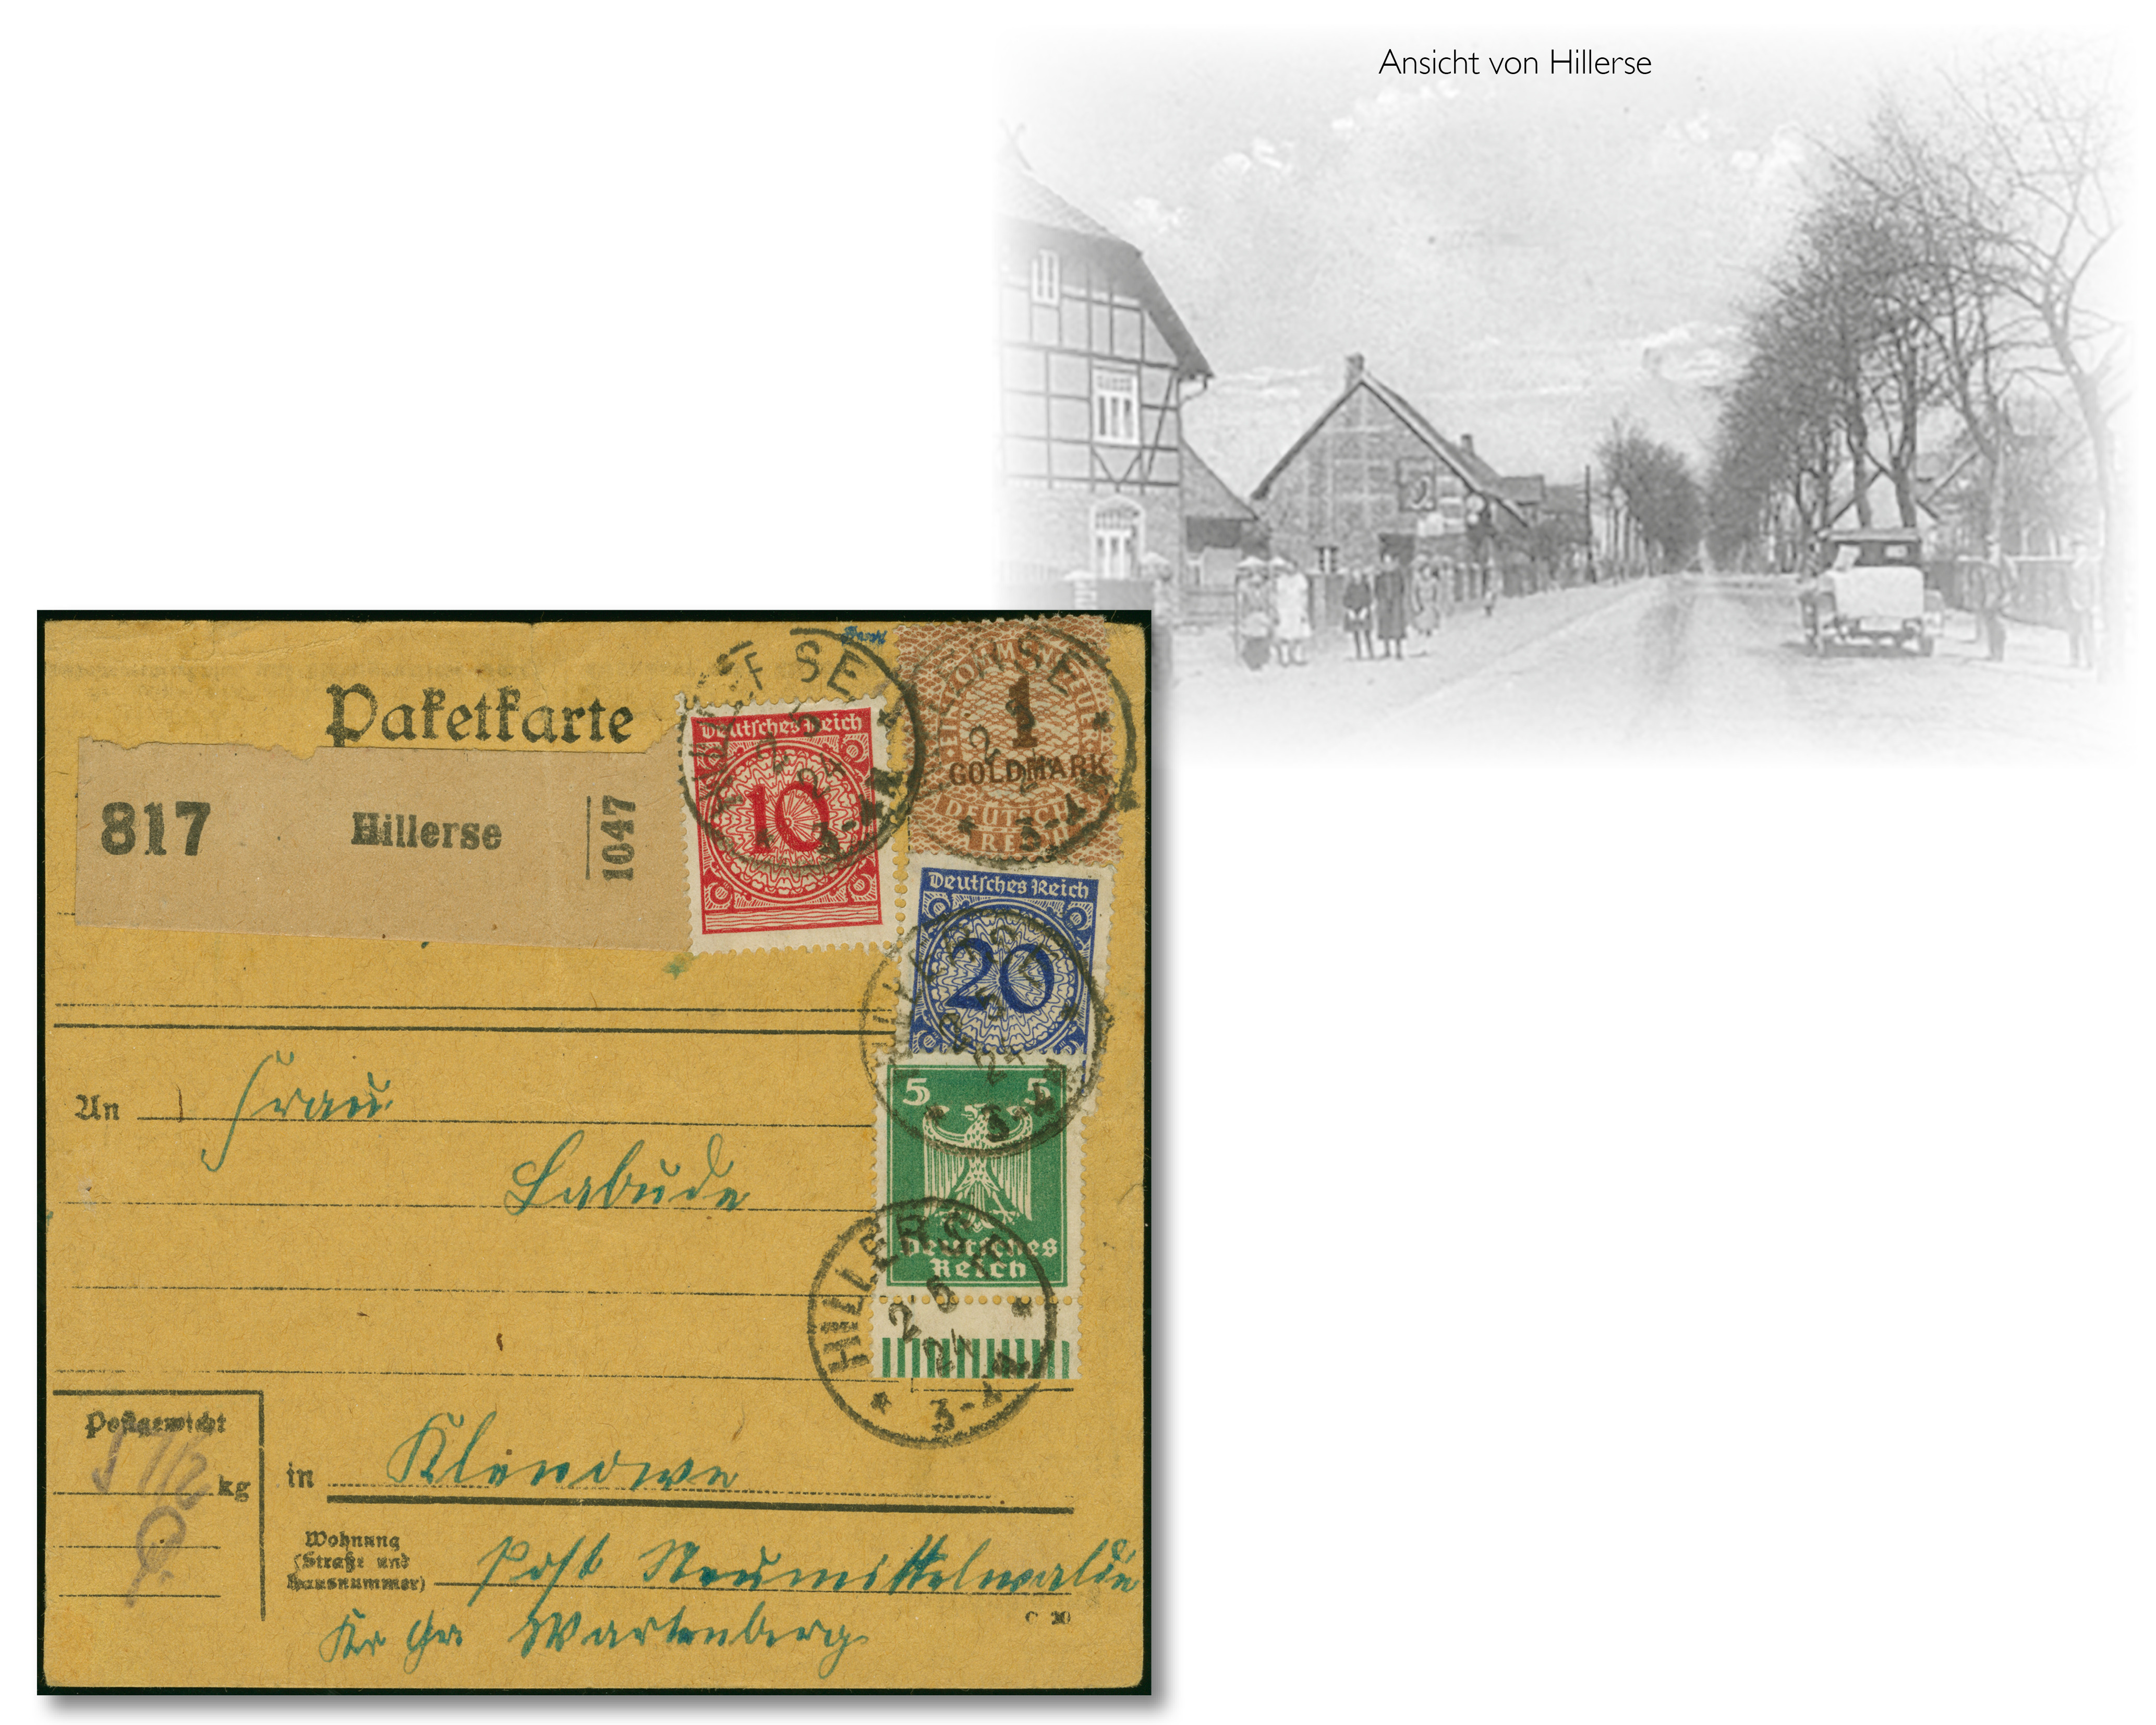 Ansicht von Hillerse
Paketkarte
817 Hillerse 1047
Deutsches Reich
10
1
GOLDMARK
DEUTSCH
REICH
HILLERSE
2 5
24
3-4 N
Deutsches Reich
20
5 5
Deutsches
Reich
HILLERSE
2 5
24
3-4 N
An Frau
Labude
Postgewicht
5 1/2 kg
in Klenowe
Wohnung
(Straße und
Hausnummer)
Post Neumittelwalde
Kr Gr Wartenberg
C 20